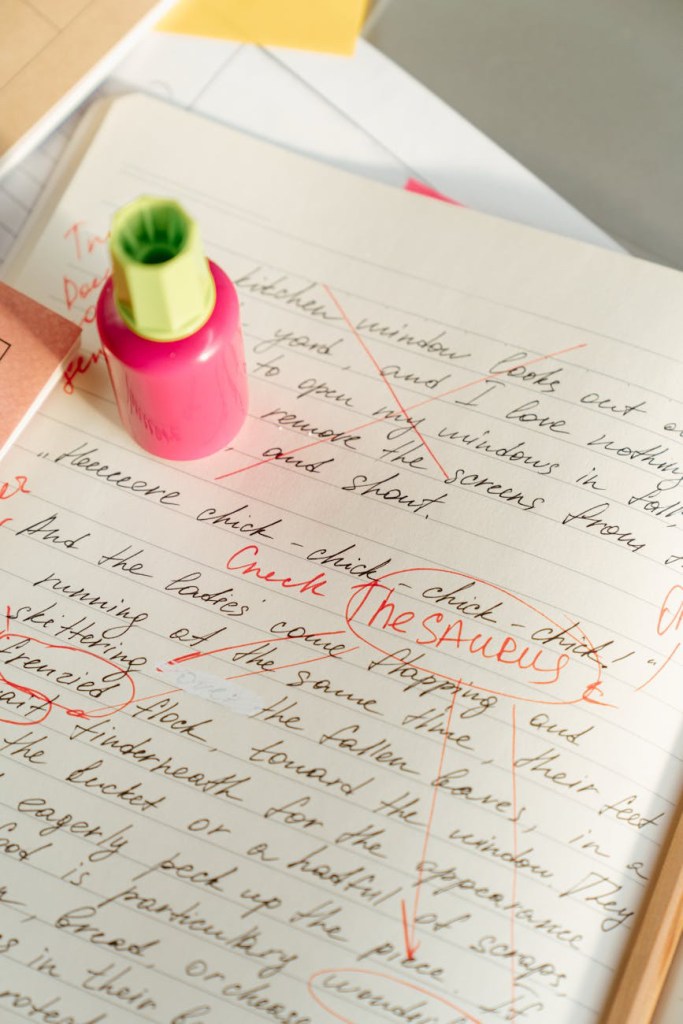 kitchen window looks out
yard, and I love nothing
to open my windows in fall,
remove the screens from
, and shout.
„Heeeeere chick - chick - chick - chick!"
Check TheSAURUS
And the ladies come flapping and
running at the same time, their feet
skittering over the fallen leaves, in a
frenzied flock, toward the window. They
wait tinderneath for the appearance
the bucket or a hadful of scraps,
eagerly peck up the piece. If
food is particulary wonder
, bread, or cheese
in their